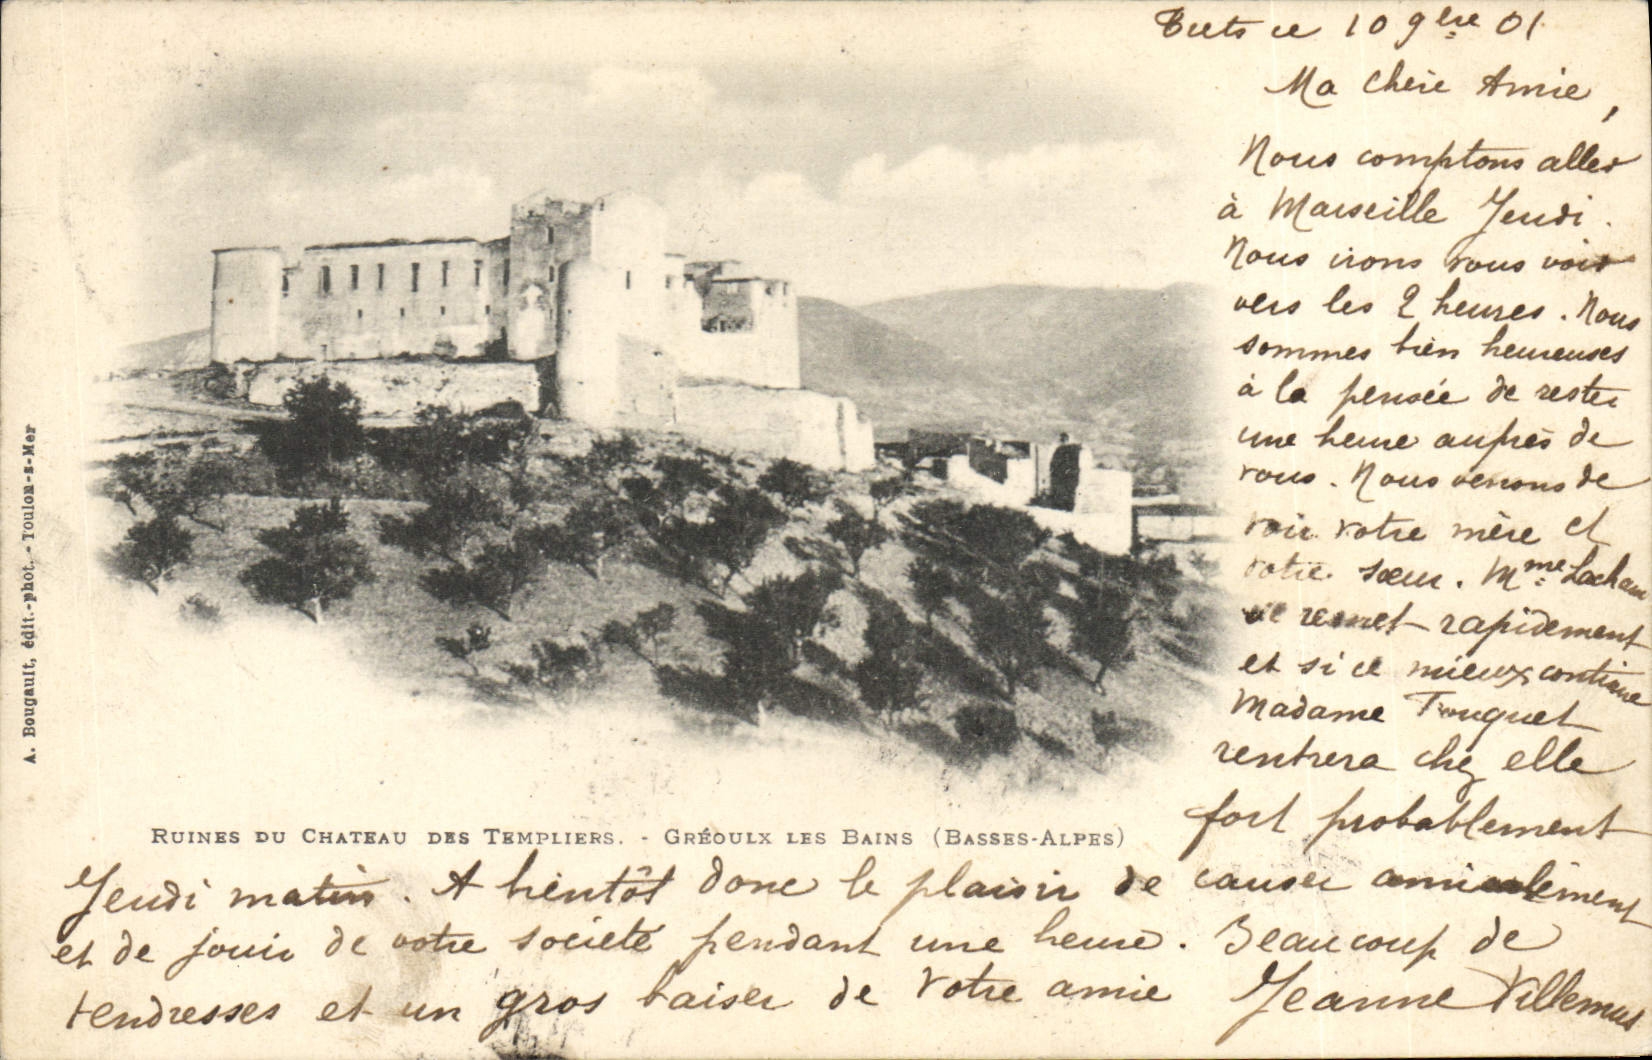 Trets ce 10 9bre 01
Ma chère Amie,
Nous comptons aller
à Marseille Jeudi.
Nous irons vous voir
vers les 2 heures. Nous
sommes bien heureuses
à la pensée de rester
une heure auprès de
vous. Nous venons de
voir votre mère et
votre sœur. Mme
se remet rapidement
et si ce mieux continue
Madame Touquet
rentrera chez elle
fort probablement
A. Bougault, édit.-phot. - Toulon-s-Mer
RUINES DU CHATEAU DES TEMPLIERS. - GRÉOULX LES BAINS (BASSES-ALPES)
Jeudi matin. A bientôt donc le plaisir de causer amicalement
et de jouir de votre société pendant une heure. Beaucoup de
tendresses et un gros baiser de votre amie Jeanne Villemus